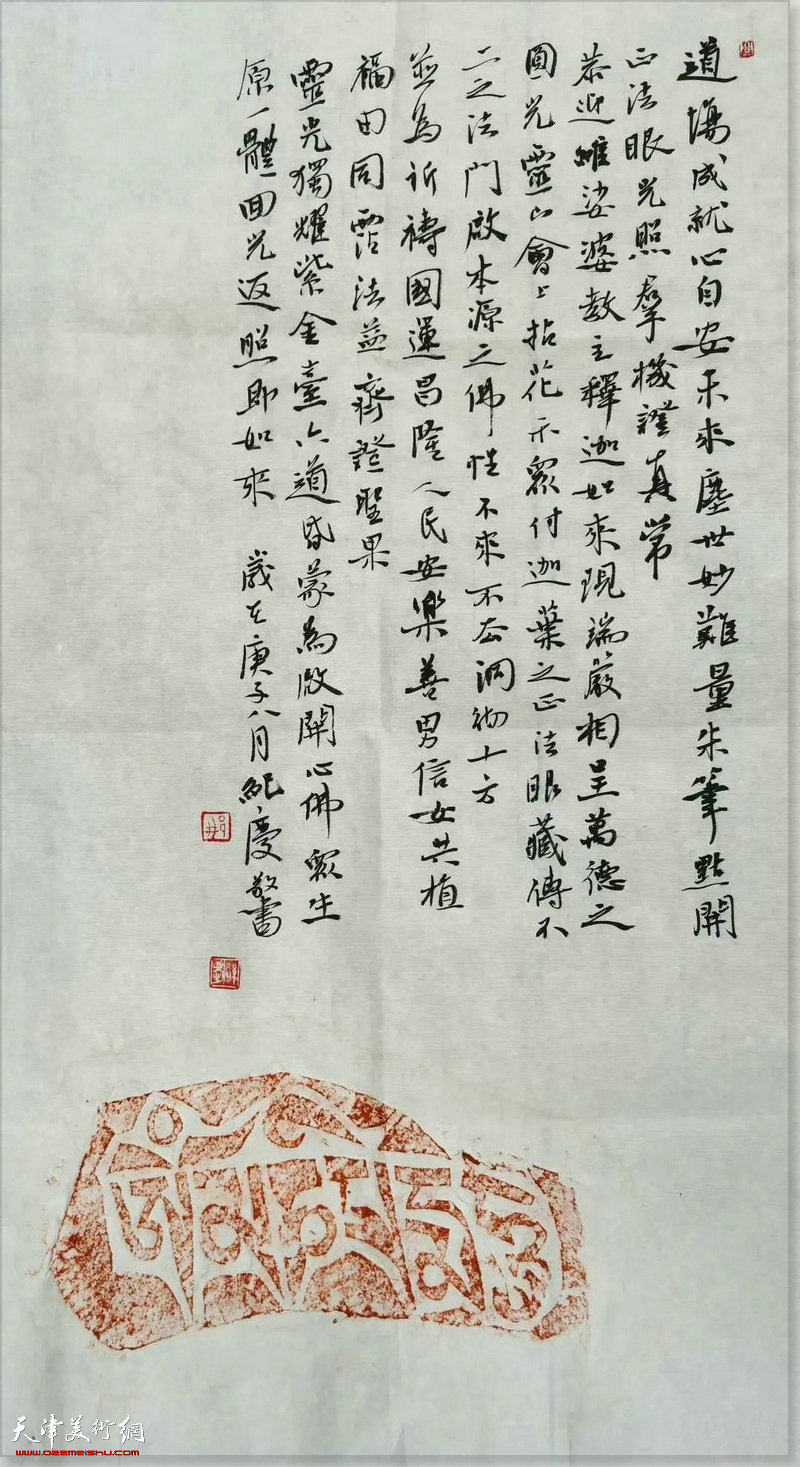 道場成就心自安未來塵世妙難量朱筆點開
正法眼光照羣機證真常
恭迎娑婆教主釋迦如來現端嚴相呈萬德之
圓光靈山會上拈花示眾付迦葉之正法眼藏傳不
二之法門啟本源之佛性不來不去洞彻十方
並為祈禱國運昌隆人民安樂善男信女共植
福田同霑法益齊證聖果
靈光獨耀紫金臺六道昏蒙為啟開心佛眾生
原一體回光返照即如來 歲在庚子八月紀慶敬書
天津美術網
www.022meishu.com